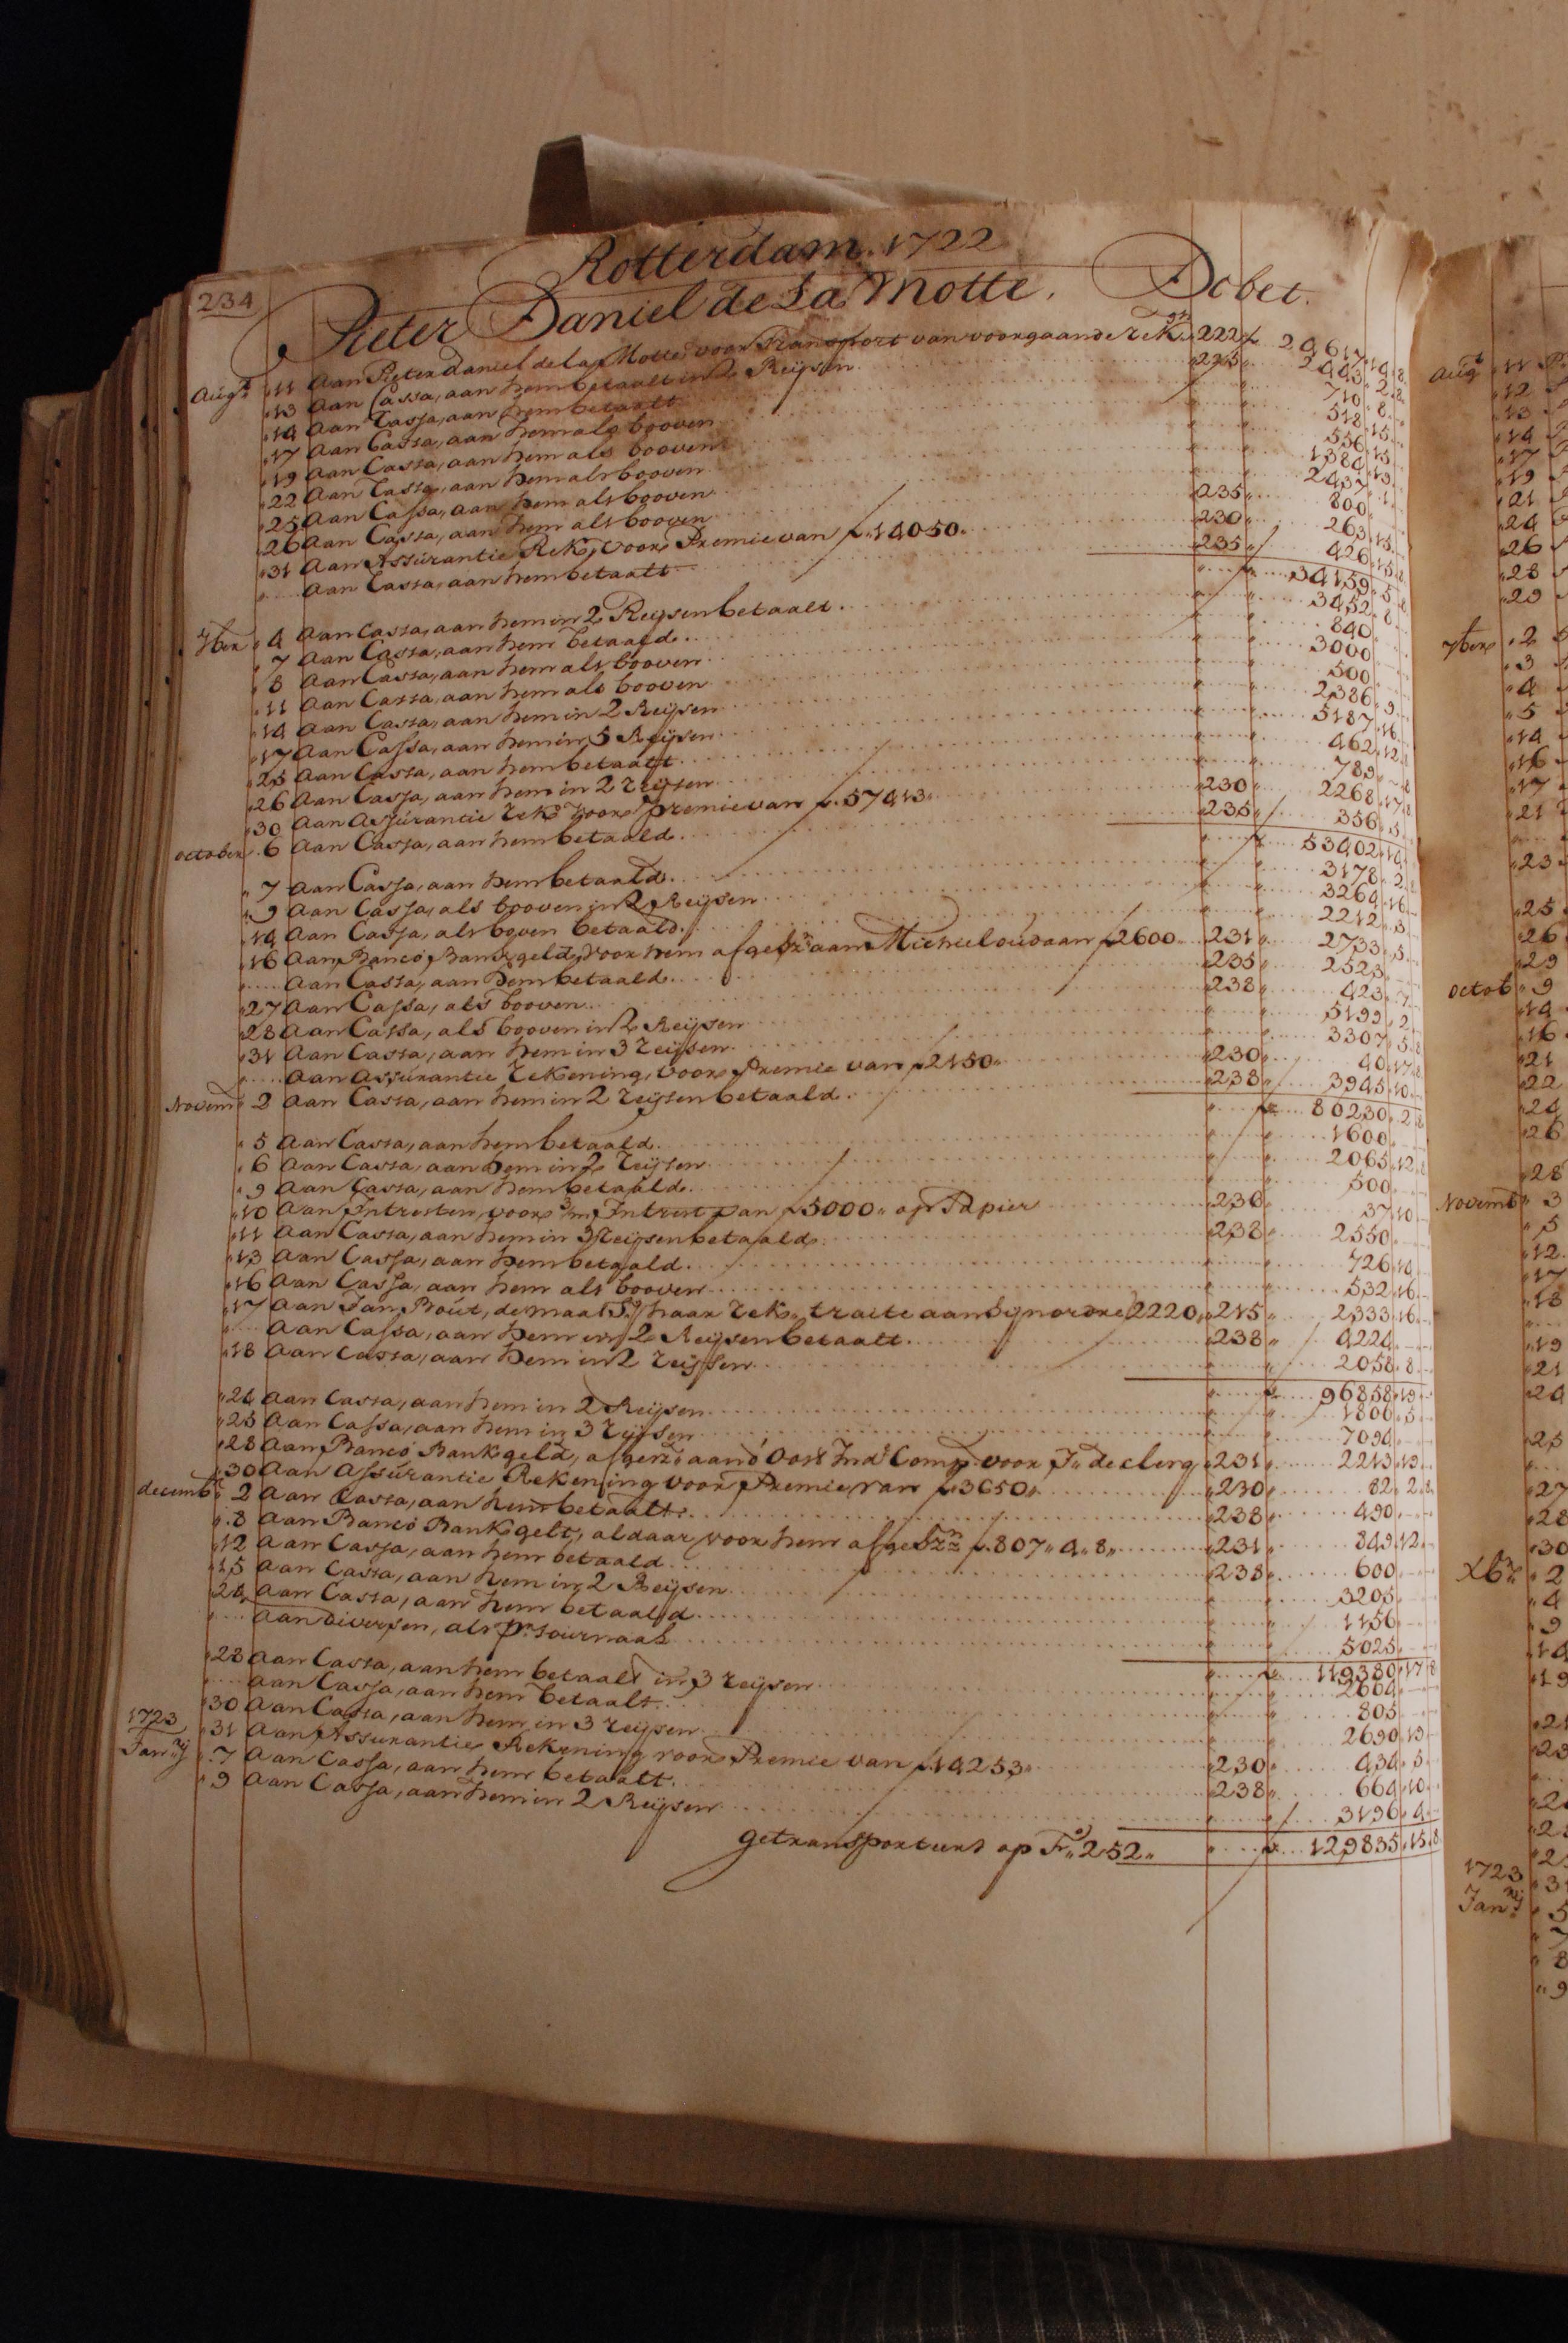 234
Rotterdam. 1722
Pieter Daniel de La Motte. Debet.
Augt 11 Aan Pieter Daniel de la Motte, voor Transport van voorgaande rek. 222 f 20617
13 Aan Cassa, aan hem betaalt in 2 Reijsen 225 2443 2 8
14 Aan Cassa, aan hem betaalt 710 8
17 Aan Cassa, aan hem als booven 518 15
19 Aan Cassa, aan hem als booven 556 15
22 Aan Cassa, aan hem als booven 1384 19
25 Aan Cassa, aan hem als booven 2437 1
26 Aan Cassa, aan hem als booven 235 800
31 Aan Assurantie Rek. voor Premie van f 14050 230 263 15
Aan Cassa, aan hem betaalt 235 426 15 8
34159 5 8
7ber 4 Aan Cassa, aan hem in 2 Reijsen betaalt 3452 8
7 Aan Cassa, aan hem betaald 840
8 Aan Cassa, aan hem als booven 3000
11 Aan Cassa, aan hem als booven 500
14 Aan Cassa, aan hem in 2 Reijsen 2386 9
17 Aan Cassa, aan hem in 5 Reijsen 5187 16
25 Aan Cassa, aan hem betaalt 462 12
26 Aan Cassa, aan hem in 2 reijsen 789
30 Aan Assurantie Reke voor Premie van f 57413 230 2268 17 8
october 6 Aan Cassa, aan hem betaald 235 356 5
53402 14
7 Aan Cassa, aan hem betaald 3178 2
9 Aan Cassa, als booven in 2 Reijsen 3264 16
14 Aan Cassa, als boven betaald 2212 5
16 Aan Banco, Bankgeld, voor hem afgesz. aan Michiel oudaan f 2600 231 2733 5
Aan Cassa, aan hem betaald 235 2523
27 Aan Cassa, als booven 238 423 7
28 Aan Cassa, als booven in 2 Reijsen 5199 2
31 Aan Cassa, aan hem in 3 reijsen 3307 5 8
Aan Assurantie Rekening, voor premie van f 2150 230 40 17 8
Novemb 2 Aan Cassa, aan hem in 2 reijsen betaald 238 3945 10
80230 2 8
5 Aan Cassa, aan hem betaald 1600
6 Aan Cassa, aan hem in 2 reijsen 2065 12 8
9 Aan Cassa, aan hem betaald 500
10 Aan Intresten, voor 3/m Intrest van f 5000 op Papier 236 37 10
11 Aan Cassa, aan hem in 3 Reijsen betaald 238 2550
13 Aan Cassa, aan hem betaald 726 10
16 Aan Cassa, aan hem als booven 532 16
17 Aan Jan Bout, de maal haar rek. traite aan sijn ordre 2220 215 2333 16
Aan Cassa, aan hem in 2 Reijsen betaalt 238 4224
18 Aan Cassa, aan hem in 2 reijsen 2058 8
96858 19
24 Aan Cassa, aan hem in 2 Reijsen 1806 5
25 Aan Cassa, aan hem in 3 reijsen 7094
28 Aan Banco Bankgeld, afgesz. aan d' Oost Ind: Comp voor J. de clerq 231 2213 13
30 Aan Assurantie Rekening voor Premie van f 3650 230 82 2 8
decemb. 2 Aan Cassa, aan hem betaalt 238 490
8 Aan Banco Bankgelt, aldaar voor hem afgesz. f 807 4 8 231 849 12
12 Aan Cassa, aan hem betaald 238 600
15 Aan Cassa, aan hem in 2 Reijsen 3205
24 Aan Cassa, aan hem betaald 1156
Aan diversen, als pr. Journaal 5025
119380 17 8
28 Aan Cassa, aan hem betaalt in 3 reijsen 2604
Aan Cassa, aan hem betaalt 805
30 Aan Cassa, aan hem in 3 reijsen 2690 19
31 Aan Assurantie Rekening voor Premie van f 14253 230 434 5
1723
Janrij 7 Aan Cassa, aan hem betaalt 238 664 10
9 Aan Cassa, aan hem in 2 Reijsen 3196 4
getransporteert op Fo. 252 129835 15 8
Augt 11
12
13
14
17
19
21
24
26
28
29
7ber 2
3
4
5
14
16
17
21
23
25
26
29
octob 9
14
16
21
22
24
26
28
Novemb 3
5
12
17
18
19
21
24
25
27
28
30
Xbr 2
4
9
14
19
1723
Janrij 5
7
8
9